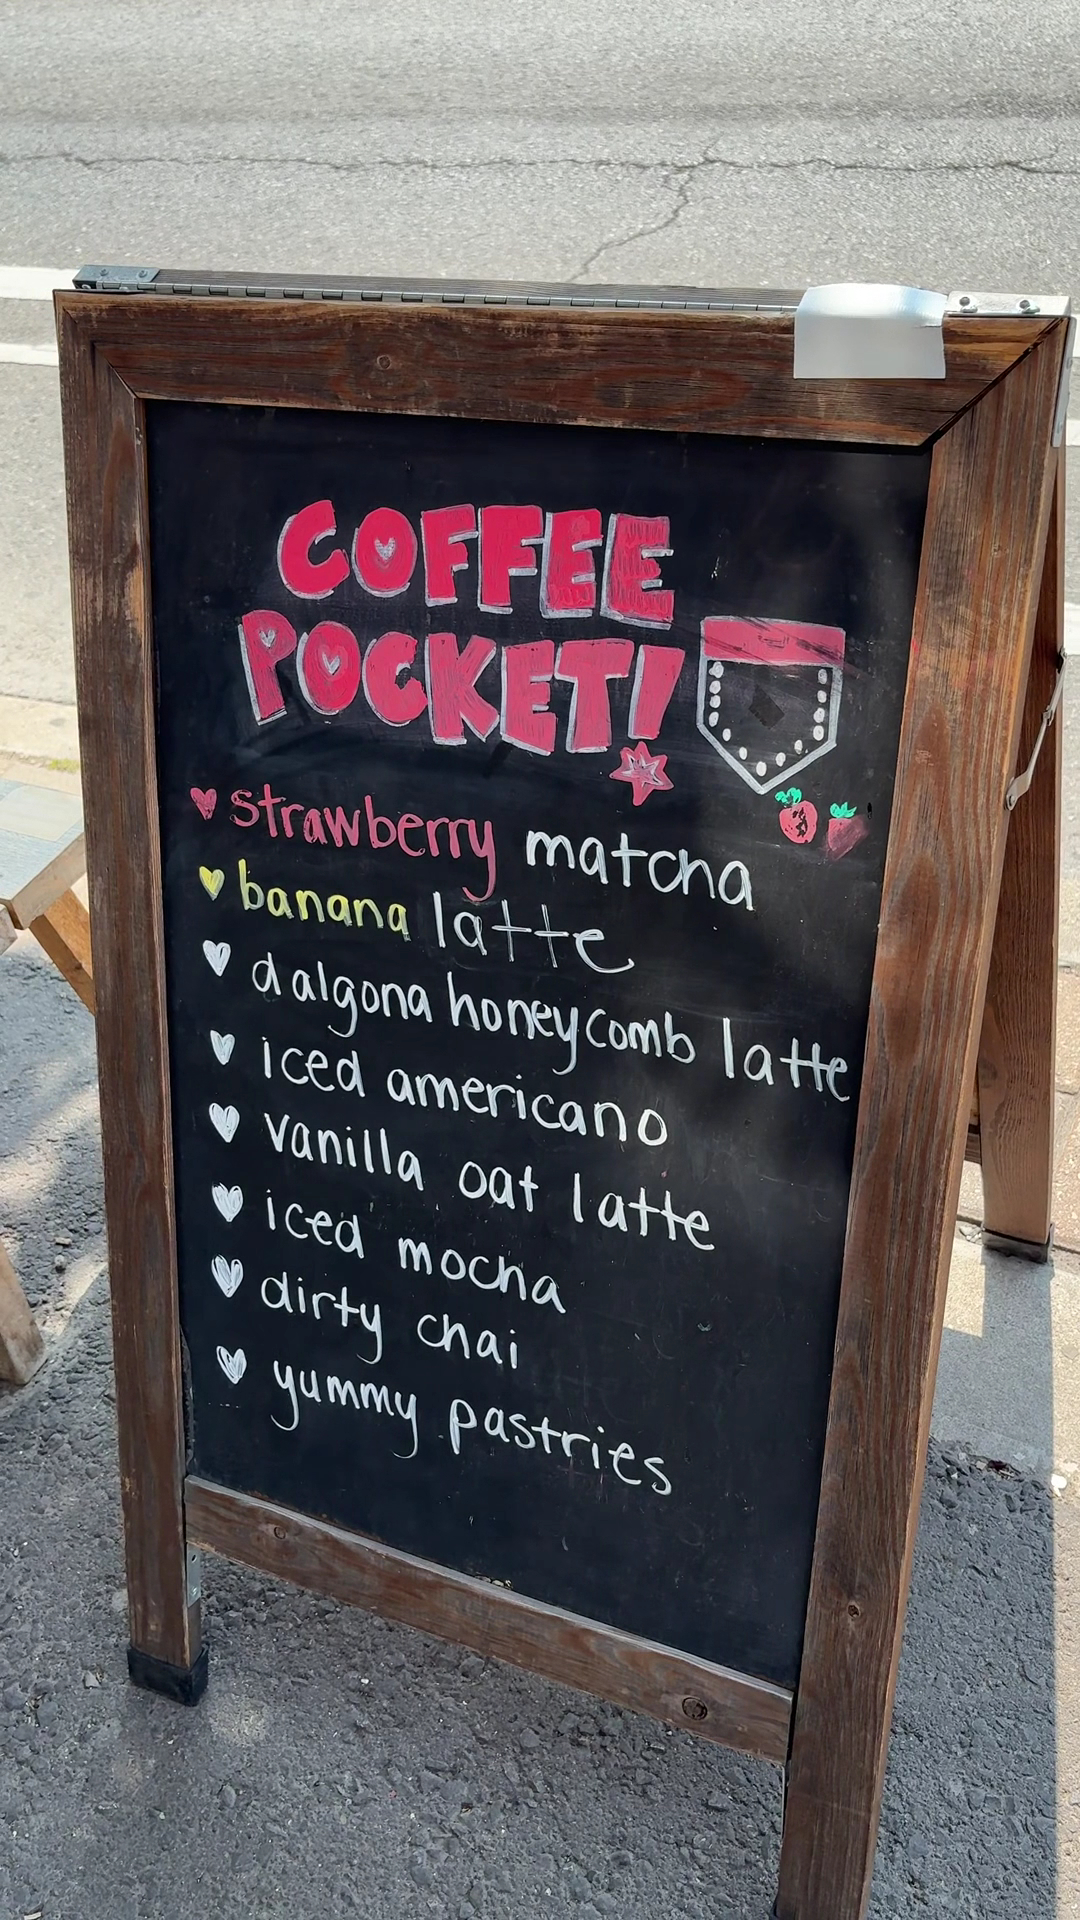 COFFEE
POCKET!
strawberry matcha
banana latte
dalgona honeycomb latte
iced americano
vanilla oat latte
iced mocha
dirty chai
yummy pastries